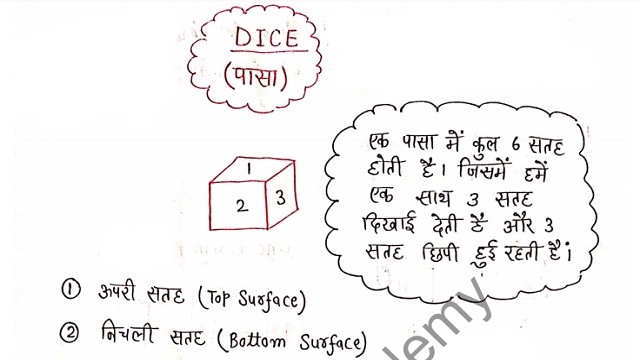 DICE
(पासा)
एक पासा में कुल 6 सतह
होती है। जिसमें हमें
एक साथ 3 सतह
दिखाई देती है और 3
सतह छिपी हुई रहती है।
1
2
3
① ऊपरी सतह (Top Surface)
② निचली सतह (Bottom Surface)